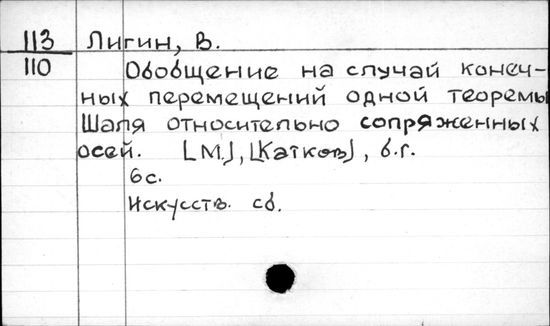 113 Лигин, В.
110 Обобщение на случай конеч-
ных перемещений одной теоремы
Шаля относительно сопряженных
осей. [М.], [Катков], б.г.
6с.
Искусств. сб.